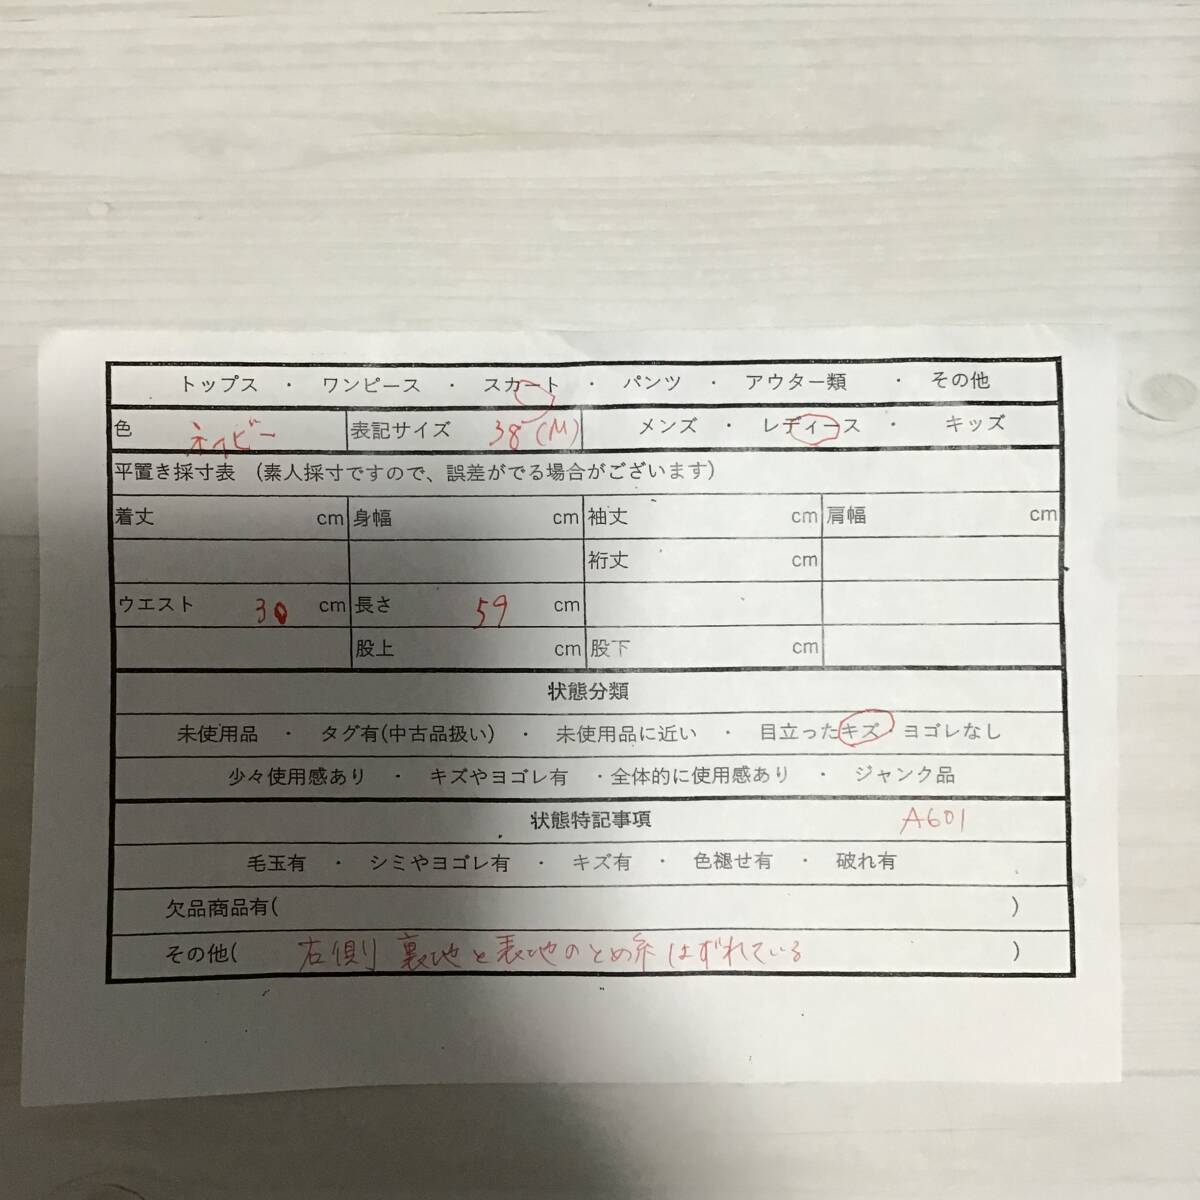 トップス ・ ワンピース ・ スカート ・ パンツ ・ アウター類 ・ その他
色 ネイビー 表記サイズ 38(M) メンズ ・ レディース ・ キッズ
平置き採寸表 (素人採寸ですので、誤差がでる場合がございます)
着丈 cm 身幅 cm 袖丈 cm 肩幅 cm
裄丈 cm
ウエスト 30 cm 長さ 59 cm
股上 cm 股下 cm
状態分類
未使用品 ・ タグ有(中古品扱い) ・ 未使用品に近い ・ 目立ったキズ・ヨゴレなし
少々使用感あり ・ キズやヨゴレ有 ・全体的に使用感あり ・ ジャンク品
状態特記事項 A601
毛玉有 ・ シミやヨゴレ有 ・ キズ有 ・ 色褪せ有 ・ 破れ有
欠品商品有( )
その他( 右側 裏地と表地のとめ糸はずれている )